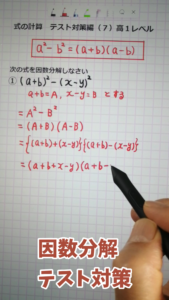 式の計算 テスト対策編（7）高1レベル
a²-b²=(a+b)(a-b)
次の式を因数分解しなさい
①(a+b)²-(x-y)²
a+b=A, x-y=B とする
=A²-B²
=(A+B)(A-B)
={(a+b)+(x-y)}{(a+b)-(x-y)}
=(a+b+x-y)(a+b-
因数分解
テスト対策